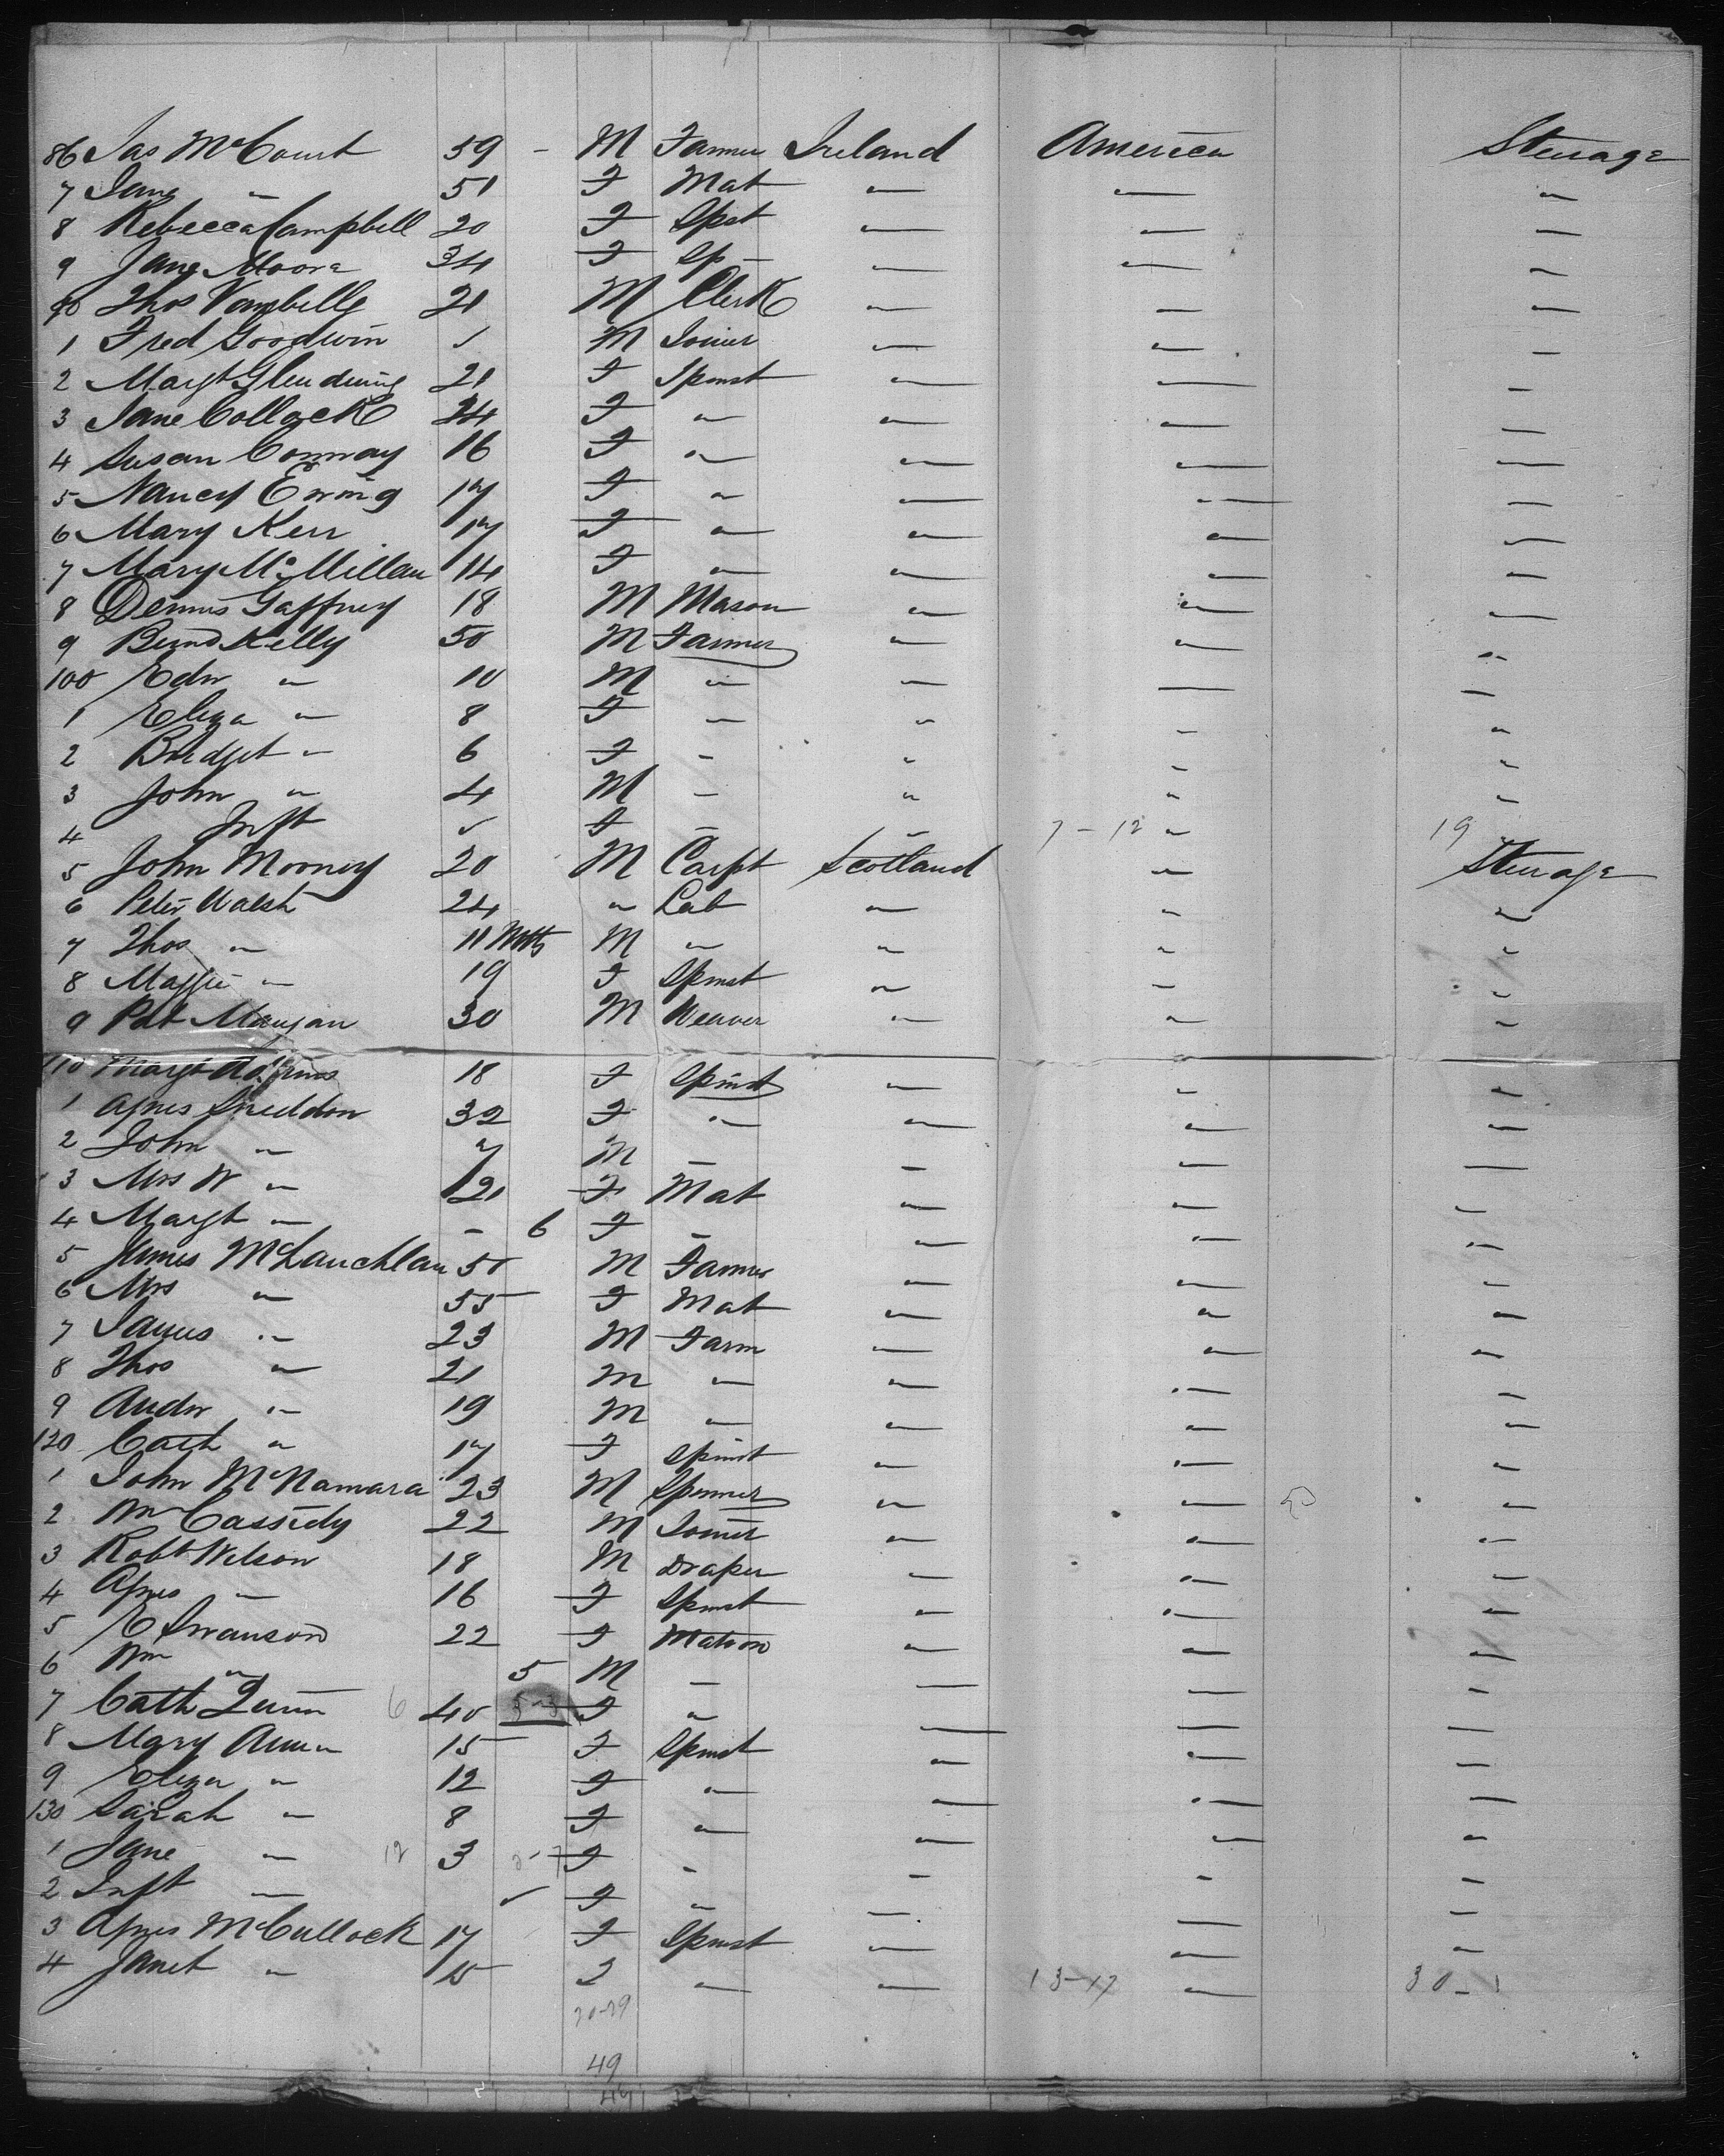 86 Jas McCourt 59 - M Farmer Ireland America Steerage
7 Jane " 51 F Mat " " "
8 Rebecca Campbell 20 F Spst " " "
9 Jane Moore 34 F Sp - " " "
90 Thos 21 M Clerk " " "
1 Fred Goodwin ✓ M Joiner " " "
2 Margt Glendining 21 F Spinst " " "
3 Jane 24 F " " " "
4 Susan Conway 16 F " " " "
5 Nancy Ewing 17 F " " " "
6 Mary Kerr 17 F " " " "
7 Mary McMillan 14 F " " " "
8 Dennis Gaffney 18 M Mason " " "
9 Kelly 50 M Farmer " " "
100 Edw " 10 M " " " "
1 Eliza " 8 F " " " "
2 Bridget " 6 F - " " "
3 John " 4 M - " " "
4 Inft ✓ F - " 7-12 " 19
5 John Mooney 20 M Carpt Scotland " Steerage
6 Peter Walsh 24 " Lab " " "
7 Thos " 11 Mths M " " " "
8 Maggie " 19 F Spinst " " "
9 Pat Mangan 30 M Weaver " " "
110 Margt 18 F Spinst " " "
1 Agnes Sneddon 32 F " " " "
2 John " 7 M - " " "
3 Mrs W " 21 F Mat " " "
4 Margt " - 6 F - " " "
5 James McLauchlan 51 M Farmer " " "
6 Mrs " 55 F Mat " " "
7 James " 23 M Farm " " "
8 Thos " 21 M " " " "
9 Andw " 19 M " " " "
120 Cath " 17 F Spinst " " "
1 John McNamara 23 M Spinner " " "
2 Wm Cassidy 22 M Joiner " " "
3 Robt Wilson 18 M Draper " " "
4 Agnes " 16 F Spinst " " "
5 E Swanson 22 F Matron " " "
6 Wm " 5 M - " " "
7 Cath Quinn 6 40 F " " " "
8 Mary Ann " 15 F Spinst " " "
9 Eliza " 12 F " " " "
130 Sarah " 8 F " " " "
1 Jane " 12 3 F - " " "
2 Inft " ✓ F " " " "
3 Agnes McCullock 17 F Spinst " " "
4 Janet " 15 F " " 13-17 " 30-1
20-29
49